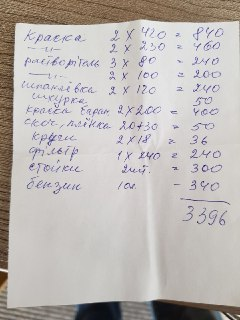 Краска 2 x 420 = 840
—"— 2 x 230 = 460
розводітель 3 x 80 = 240
—"— 2 x 100 = 200
шпаклівка 2 x 120 = 240
шкурка 50
краска баран 2 x 200 = 400
скоч, плінка 20+30 = 50
круги 2 x 18 = 36
фільтр 1 x 240 = 240
стойки 2шт. = 300
бензин 10л - 340
3396